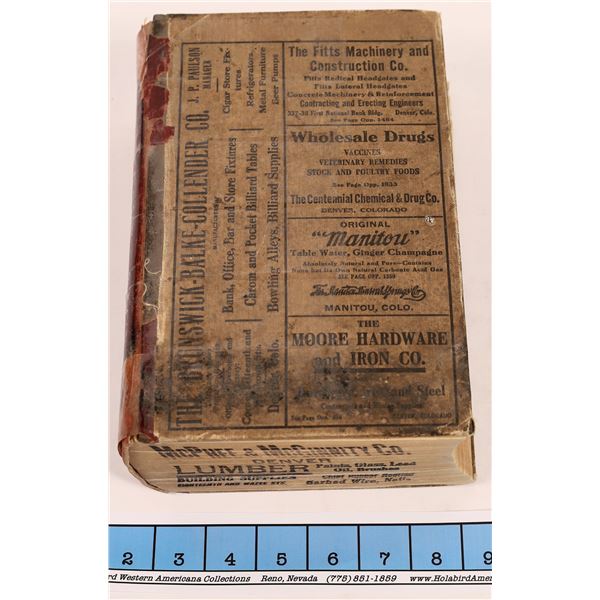 THE BRUNSWICK-BALKE-COLLENDER CO. J. P. PAULSON
MANAGER
Cigar Store Fix-
tures
Refrigerators
Metal Furniture
Beer Pumps
Bank, Office, Bar and Store Fixtures
Carom and Pocket Billiard Tables
Bowling Alleys, Billiard Supplies
Denver, Colo.
The Fitts Machinery and
Construction Co.
Fitts Radical Headgates and
Fitts Lateral Headgates
Concrete Machinery & Reinforcement
Contracting and Erecting Engineers
337-38 First National Bank Bldg. Denver, Colo.
See Page Opp. 1464
Wholesale Drugs
VACCINES
VETERINARY REMEDIES
STOCK AND POULTRY FOODS
See Page Opp. 1833
The Centennial Chemical & Drug Co.
DENVER, COLORADO
ORIGINAL
"Manitou"
Table Water, Ginger Champagne
Absolutely Natural and Pure—Contains
None but Its Own Natural Carbonic Acid Gas
SEE PAGE OPP. 1350
The Manitou Mineral Springs Co.
MANITOU, COLO.
THE
MOORE HARDWARE
and IRON CO.
and Steel
See Page Opp.
DENVER, COLORADO
McPHEE & McGINNITY CO.
DENVER
LUMBER Paints, Glass, Lead
Oil, Brushes
BUILDING SUPPLIES Chief Rubber Roofing
EIGHTEENTH AND WAZEE STS. Barbed Wire, Nails
2 3 4 5 6 7 8 9
rd Western Americana Collections Reno, Nevada (775) 851-1859 www.HolabirdAmer